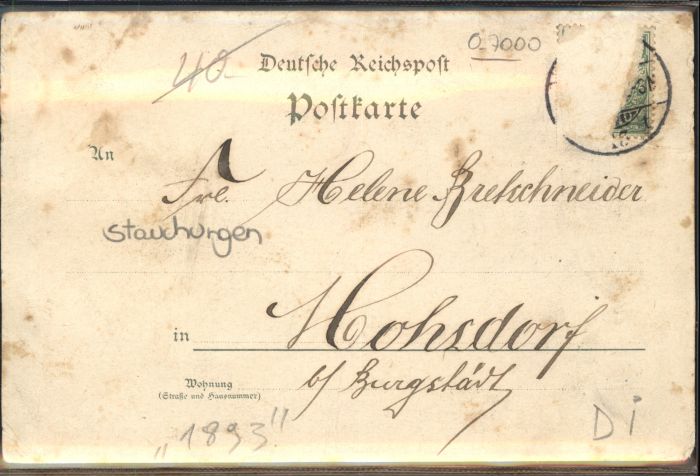 40.-
0.7000
Deutsche Reichspost
Postkarte
An
Frl. Helene Bretschneider
Stauchungen
in Mohsdorf
Wohnung
(Straße und Hausnummer)
b/ Burgstädt
„1893"
Di